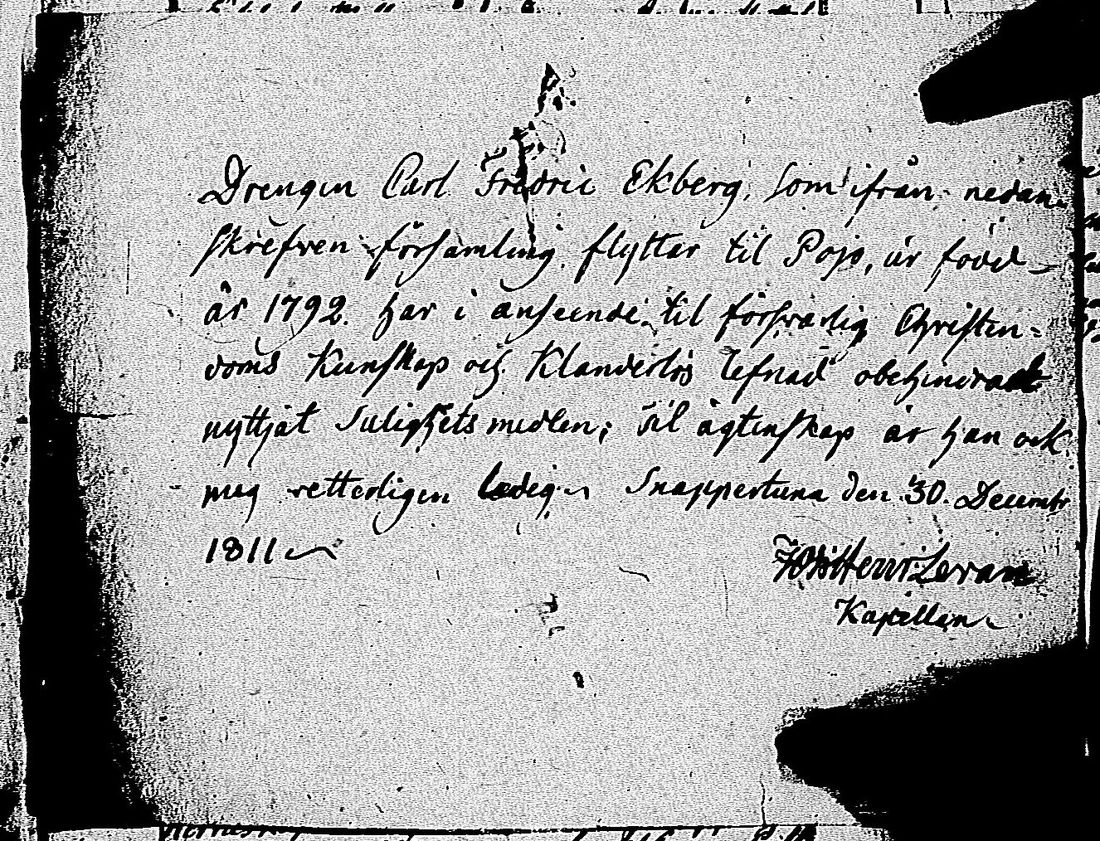 Drengen Carl Fredric Ekberg, som ifrån nedan-
skrefven församling flyttar til Pojo, är född
år 1792. har i anseende til försvarlig Christen-
doms Kunskap och Klanderlös lefnad obehindradt
nyttjat Salighets medlen; til ägtenskap är han ock
mig vetterligen ledig. Snappertuna den 30. Decembr
1811
Kapellan